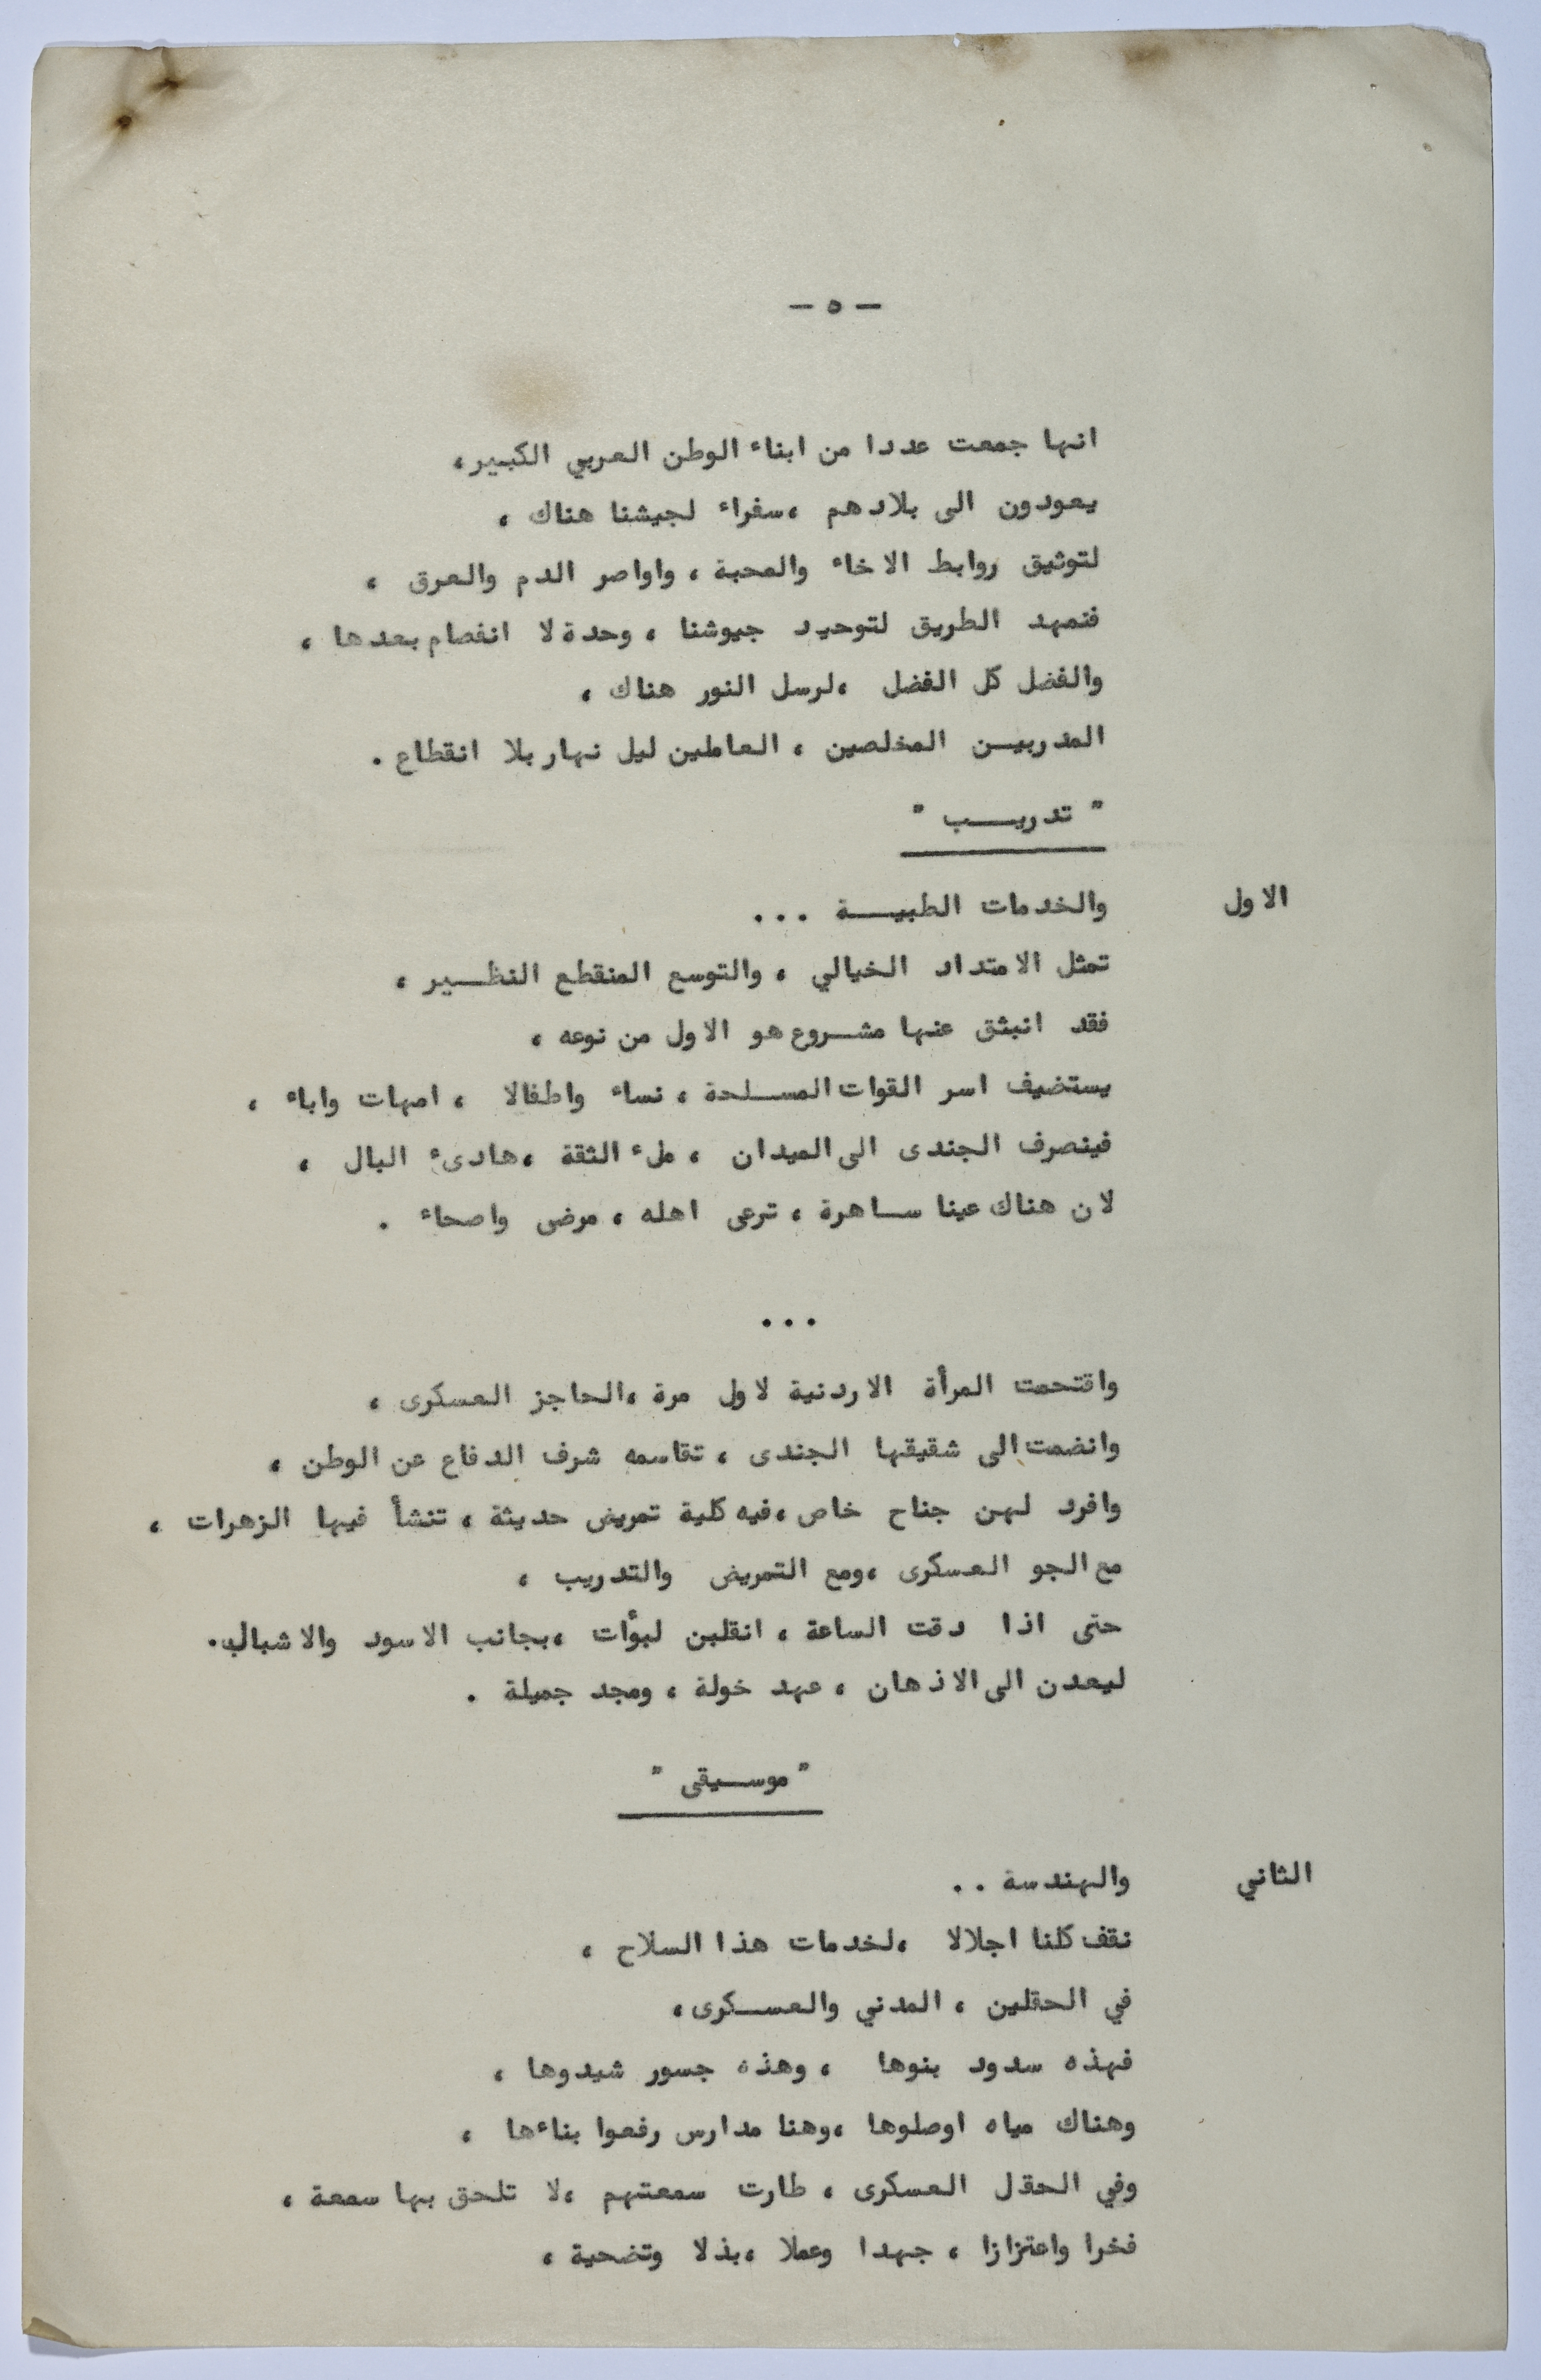 — ٥ —
انها جمعت عددا من ابناء الوطن العربي الكبير،
يعودون الى بلادهم ،سفراء لجيشنا هناك ،
لتوثيق روابط الاخاء والمحبة ، واواصر الدم والعرق ،
فتمهد الطريق لتوحيد جيوشنا ، وحدة لا انفصام بعدها ،
والفضل كل الفضل ،لرسل النور هناك ،
المدربيـن المخلصين ، العاملين ليل نهار بلا انقطاع .
" تدريـــب "
الاول والخدمات الطبيـــة ...
تمثل الامتداد الخيالي ، والتوسع المنقطع النظــير ،
فقد انبثق عنها مشــروع هو الاول من نوعه ،
يستضيف اسر القوات المســلحة ، نساء واطفالا ، امهات واباء ،
فينصرف الجندى الى الميدان ، ملء الثقة ،هادىء البال ،
لان هناك عينا ســاهرة ، ترعى اهله ، مرضى واصحاء .
...
واقتحمت المرأة الاردنية لاول مرة ،الحاجز العسكرى ،
وانضمت الى شقيقها الجندى ، تقاسمه شرف الدفاع عن الوطن ،
وافرد لهن جناح خاص ،فيه كلية تمريض حديثة ، تنشأ فيها الزهرات ،
مع الجو العسكرى ،ومع التمريض والتدريب ،
حتى اذا دقت الساعة ، انقلبن لبؤات ،بجانب الاسود والاشبال.
ليعدن الى الاذهان ، عهد خولة ، ومجد جميلة .
" موســيقى "
الثاني والهندسة ..
نقف كلنا اجلالا ،لخدمات هذا السلاح ،
في الحقلين ، المدني والعســكرى،
فهذه سدود بنوها ، وهذه جسور شيدوها ،
وهناك مياه اوصلوها ،وهنا مدارس رفعوا بناءها ،
وفي الحقل العسكرى ، طارت سمعتهم ،لا تلحق بها سمعة ،
فخرا واعتزازا ، جهدا وعملا ،بذلا وتضحية ،